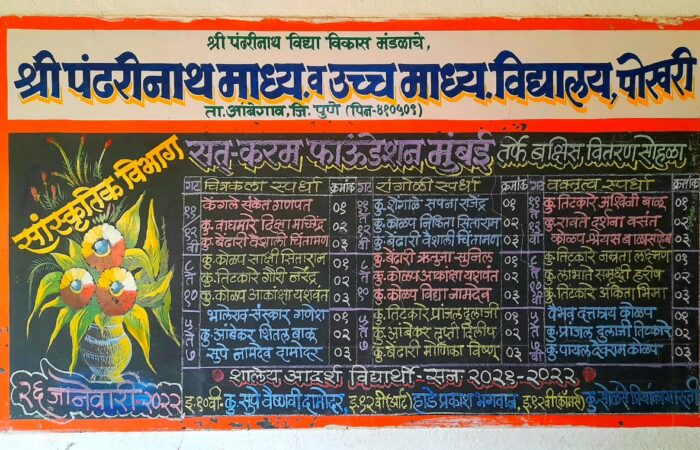 श्री पंढरीनाथ विद्या विकास मंडळाचे,
श्री पंढरीनाथ माध्य. व उच्च माध्य. विद्यालय, पोखरी
ता. आंबेगाव, जि. पुणे (पिन-४१०५०९)
सांस्कृतिक विभाग
सत्-करम फाऊंडेशन मुंबई तर्फे बक्षिस वितरण सोहळा
गट चित्रकला स्पर्धा क्रमांक गट रांगोळी स्पर्धा क्रमांक गट वक्तृत्व स्पर्धा
केंगले संकेत गणपत ०१ कु. शेंगाळे सपना राजेंद्र ०१ कु. तिटकारे अश्विनी बाळू
कु. वाघमारे दिक्षा मच्छिंद्र ०२ कु. कोळप निकिता सिताराम ०२ कु. रावते दर्शना वसंत
कु. बेंढारी वैशाली चिंतामण ०३ कु. बेंढारी वैशाली चिंतामण ०३ कोळप श्रेयस बाळासाहेब
कु. कोळप साक्षी सिताराम ०१ कु. बेंढारी ऋतुजा सुनिल ०१ कु. तिटकारे नम्रता लक्ष्मण
कु. तिटकारे गौरी नरेंद्र ०२ कु. कोळप आकांक्षा यशवंत ०२ कु. लांभाते समृध्दी हरीष
कु. कोळप आकांक्षा यशवंत ०३ कु. कोळप विद्या नामदेव ०३ कु. तिटकारे अंकिता भिमा
भालेराव संस्कार गणेश ०१ कु. तिटकारे प्रांजल दुलाजी ०१ वैभव दत्तात्रय कोळप
कु. आंबेकर शितल बाळू ०२ कु. आंबेकर तृप्ती दिलीप ०२ कु. प्रांजल दुलाजी तिटकारे
सुपे नामदेव दामोदर ०३ कु. बेंढारी मोणिका विष्णू ०३ कु. पायल देवराम कोळप
शालेय आदर्श विद्यार्थी:- सन २०२१-२०२२
२६ जानेवारी-२०२२ इ. १०वी- कु. सुपे वैष्णवी दामोदर, इ. १२वी (आर्ट) हांडे प्रकाश भगवान, इ. १२वी (कॉमर्स)